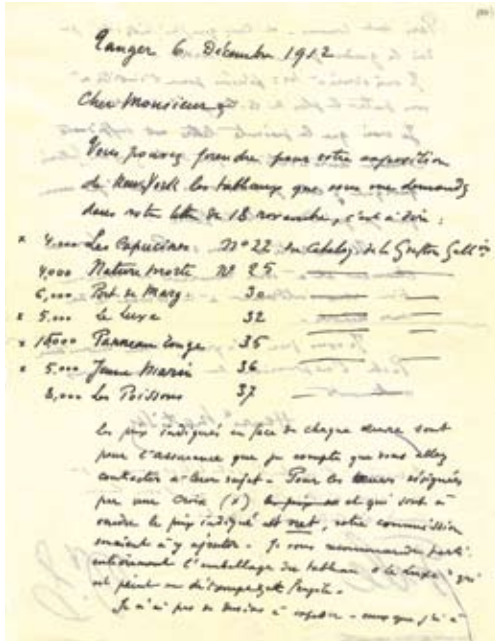 Tanger 6 Décembre 1912
Cher Monsieur,
Vous pouvez prendre pour votre exposition
de New York les tableaux que vous me demandez
dans votre lettre du 18 novembre, c'est à dire :
x 4.000 Les Capucines N° 22 du Catalog. de la Grafton Gall
4,000 Nature morte N° 25
6,000 Port de 30
x 5.000 Le Luxe 32
x Panneau rouge 35
x 5.000 Jeune Marin 36
Les Poissons 37
Les prix indiqués en face de chaque œuvre sont
pour l'assurance que je compte que vous allez
contracter à leur sujet. Pour les désignées
par une croix (x) et qui sont à
vendre le prix indiqué est net, votre commission
à y ajouter. Je vous recommande parti
l'emballage du tableau "le Luxe" qui
est peint en détrempe
Je n'ai pas de dessins à